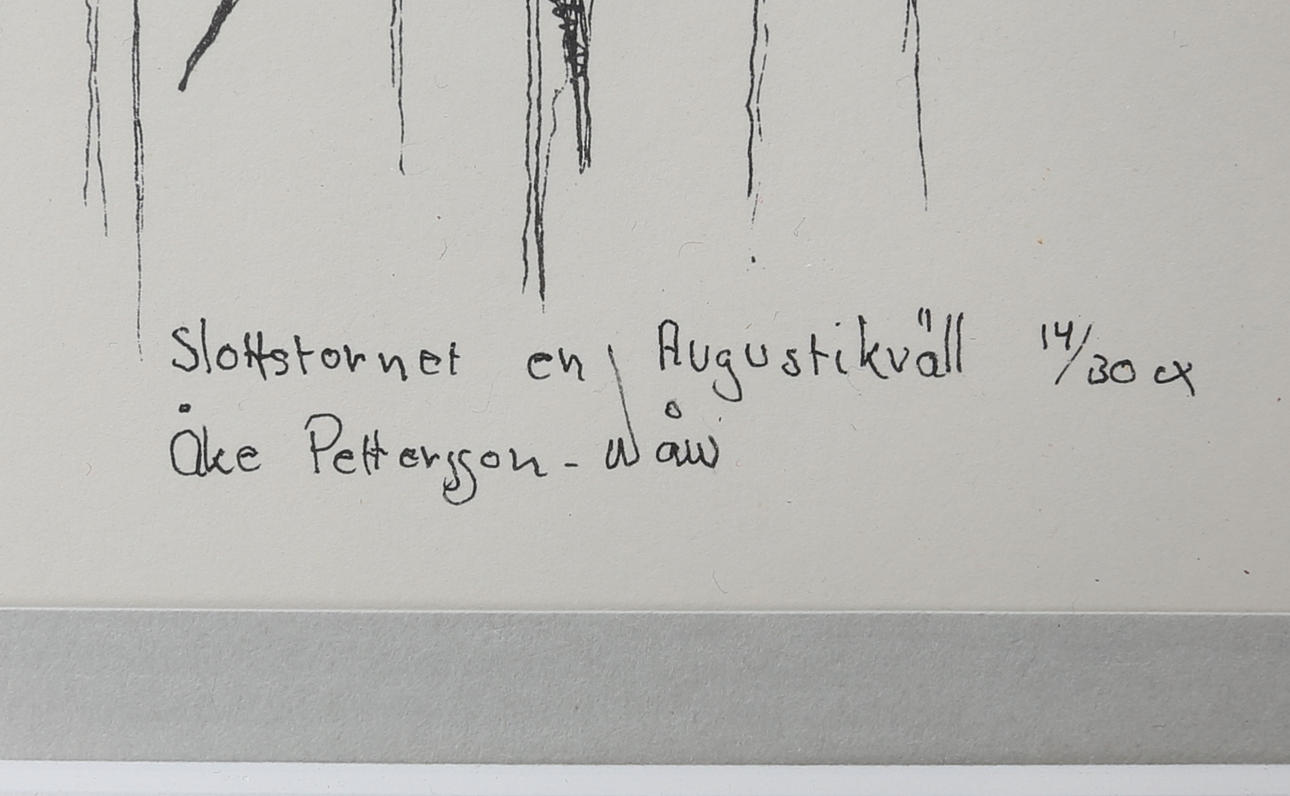 Slottstornet en Augustikväll 14/30 ex
Åke Pettersson - Wåw